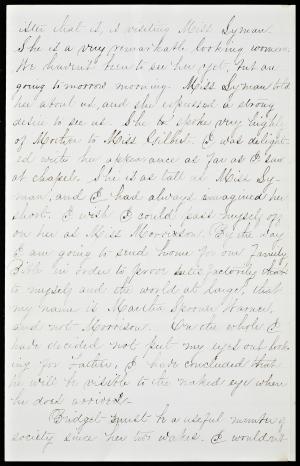 ister that is, is visiting Miss Lyman.
She is a very remarkable looking woman.
We havent been to see her yet, but are
going to morrow morning. Miss Lyman told
her about us, and she expressed a strong
desire to see us. She spoke very highly
of Mother to Miss Gilbert. I was delight-
ed with her appearance as far as I saw
at chapel. She is as tall as Miss Ly-
man, and I had always imagined her
short. I wish I could pass myself off
on her as Miss Morrison. By the way
I am going to send home for our Family
Bible in order to prove satisfactorily
to myself and the world at large, that
my name is Warner,
and not Morrison. On the whole I
have decided not put my eyes out look-
ing for Father, I have concluded that
he will be visible to the naked eye when
he does arrive.
Bridget must be a useful member of
society since her two wakes. I wouldn't